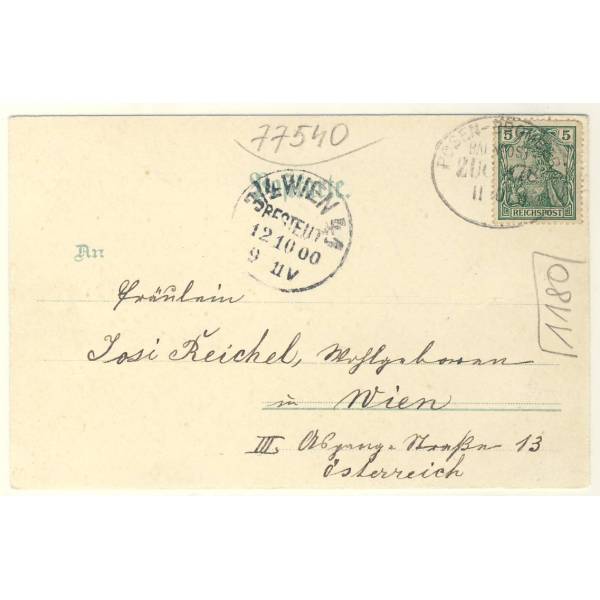 77540
Postkarte.
5 5
REICHSPOST
POSEN-
BAHNPOST
ZUG
11
3/4 WIEN 4
BESTELLT
12 10 00
9 UV
An
1180
Fräulein
Josi Reichel, Wohlgeboren
in Wien
III, Straße 13
Österreich